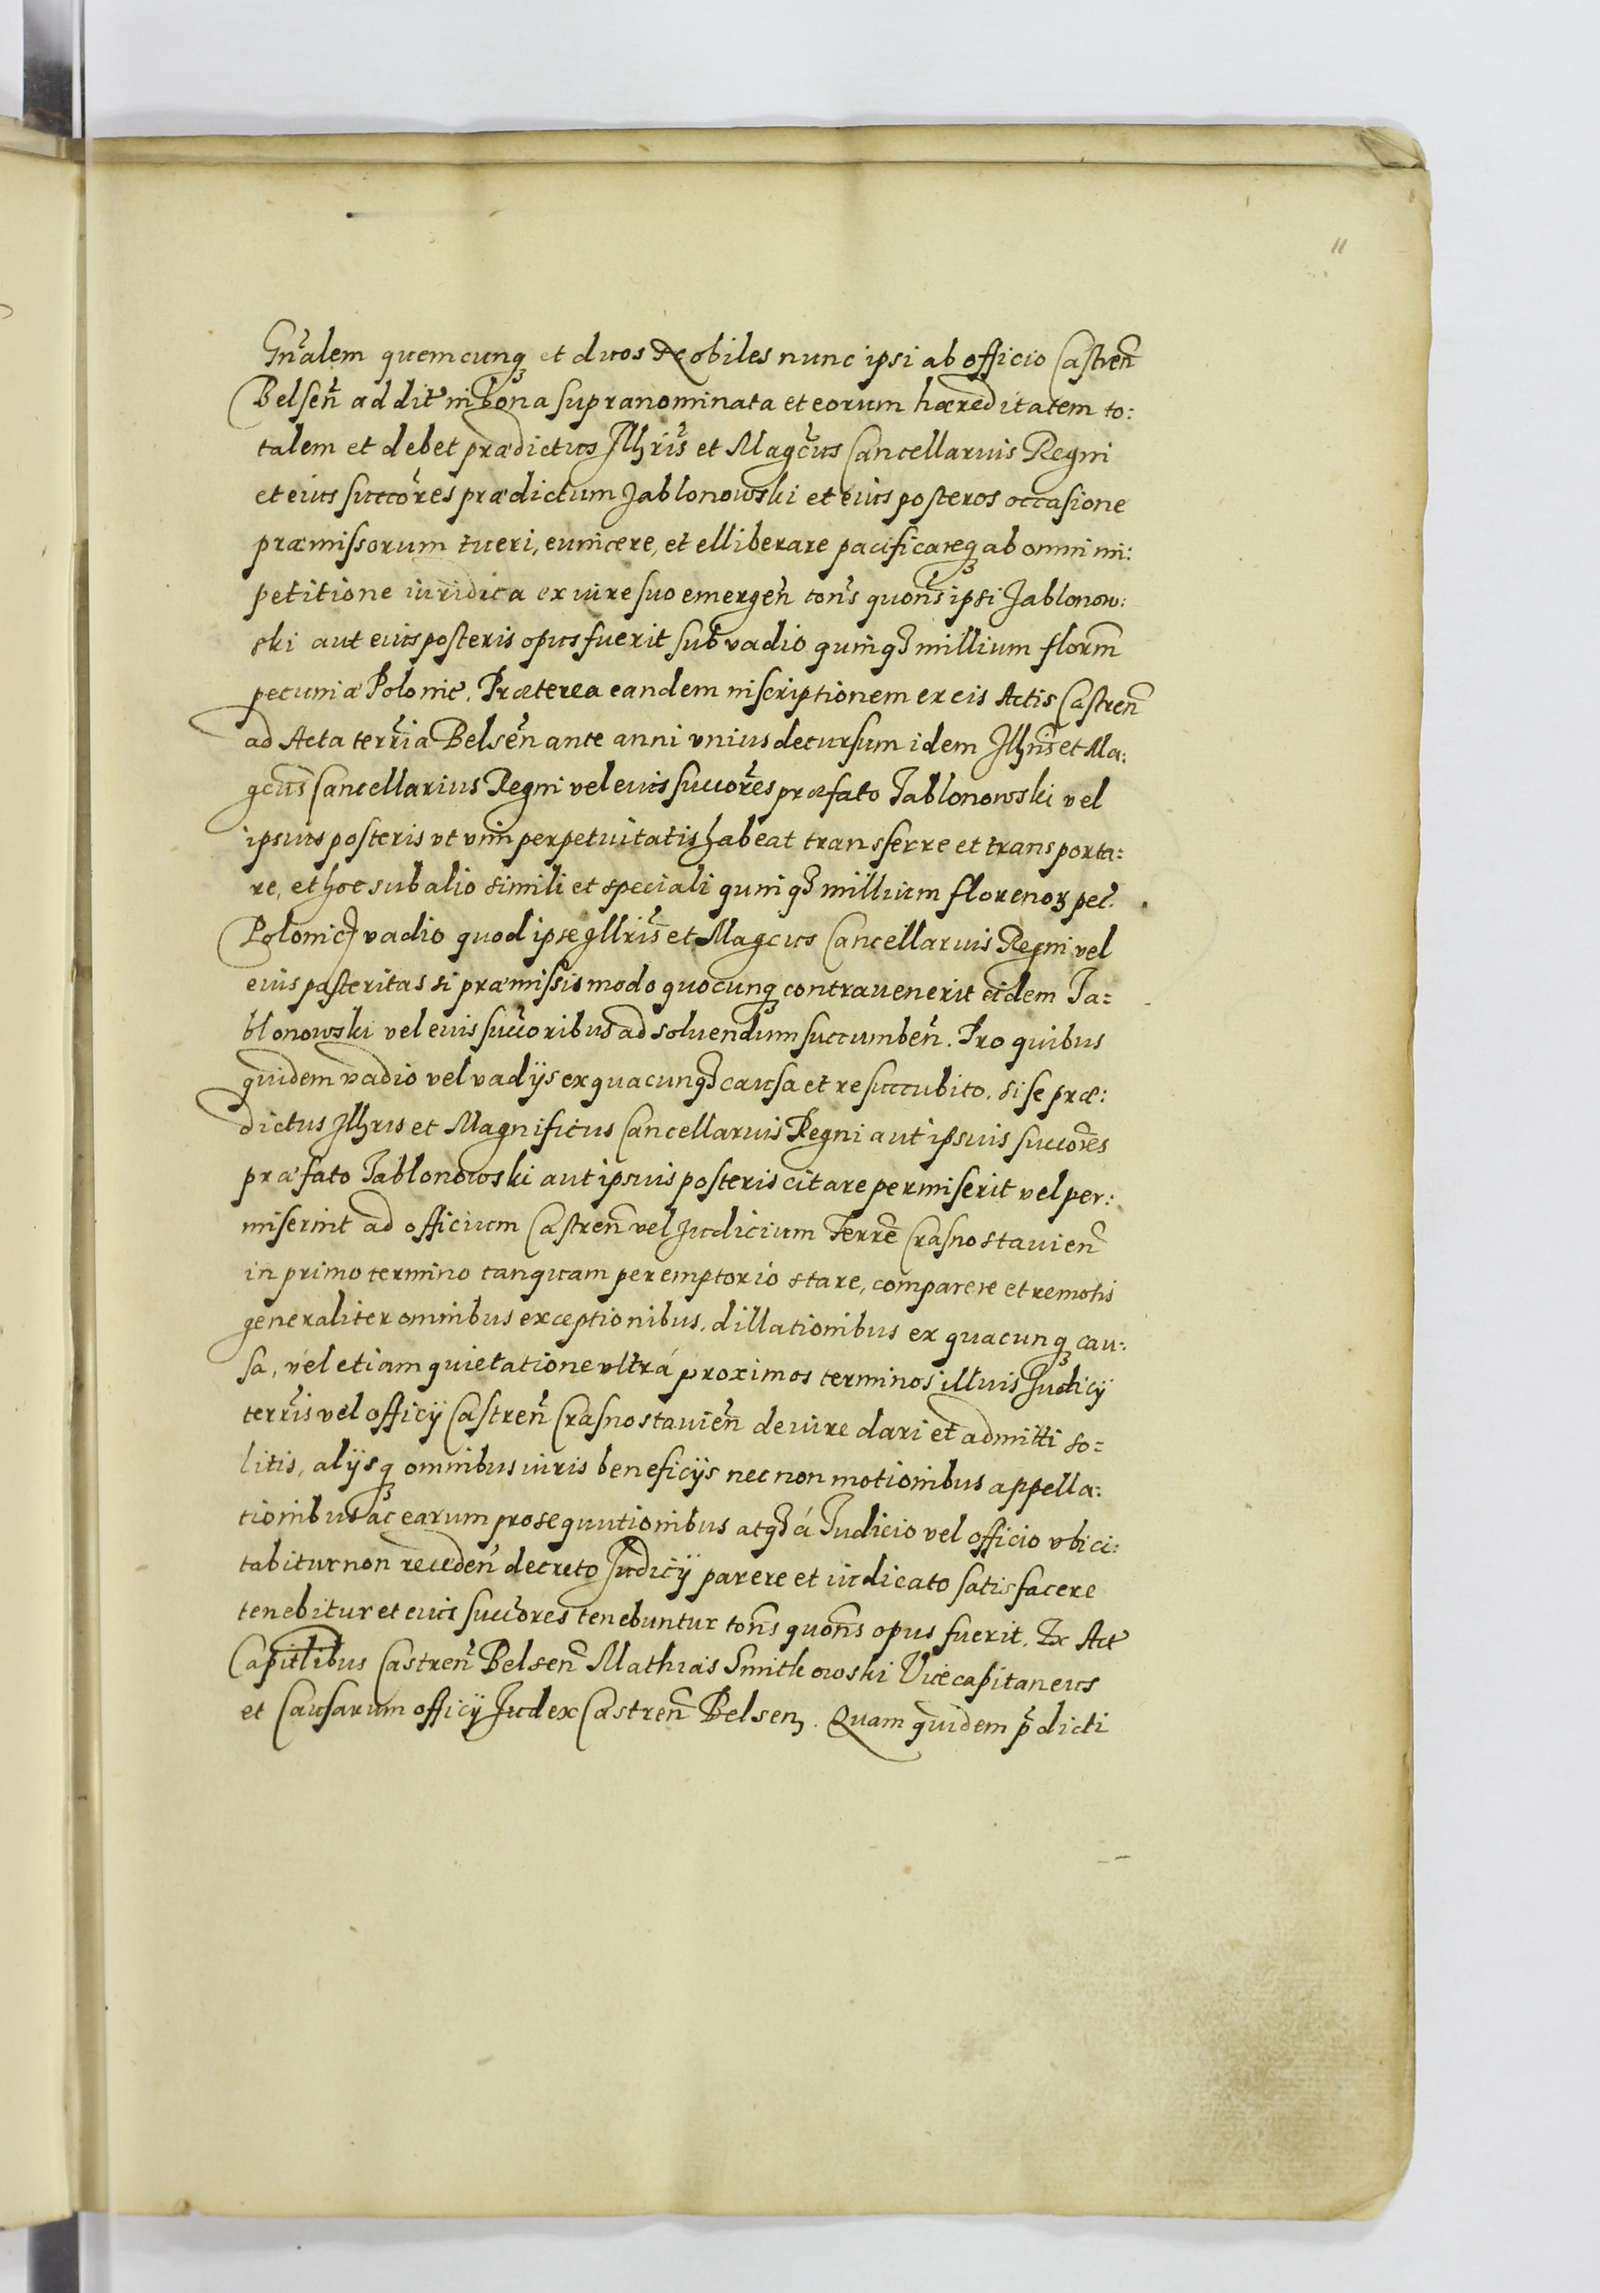 11
Gnr̃alem quemcunq₃ et duos Nobiles nunc ipsi ab officio Castreñ
Belseñ addit in bona supranominata et eorum hæreditatem to:
talem et debet prædictus Jllr̃is et Magcus Cancellarius Regni
et eius succores prædictum Jablonowski et eius posteros occasione
præmissorum tueri, euincere, et elliberare pacificareq₃ ab omni im:
petitione iuridica ex iure suo emergeñ tons quons ipsi Jablonow:
ski aut eius posteris opus fuerit sub vadio quinq₃ millium florm̃
pecuniæ Polonic̃. Præterea eandem inscriptionem ex eis Actis Castreñ
ad Acta terria Belseñ ante anni vnius decursum idem Jllris et Ma:
gcus Cancellarius Regni vel eius succores præfato Jablonowski vel
ipsius posteris vt vim perpetuitatis habeat transferre et transporta:
re, et hoc sub alio simili et speciali quinq₃ millium florenoꝝ pec̃.
Polonic̃ vadio quod ipse Jllris et Magcus Cancellarius Regni vel
eius posteritas si præmissis modo quocunq₃ contrauenerit eidem Ja:
blonowski vel eius succoribus ad soluendum succumbeñ. Pro quibus
quidem vadio vel vadijs ex quacunq₃ causa et re succubito, si se præ:
dictus Jllris et Magnificus Cancellarius Regni aut ipsius succores
præfato Jablonowski aut ipsius posteris citare permiserit vel per:
miserint ad officium Castreñ vel Judicium Terrẽ Crasnostauieñ
in primo termino tanquam peremptorio stare, comparere et remotis
generaliter omnibus exceptionibus, dillationibus ex quacunq₃ cau:
sa, vel etiam quietatione vltrá proximos terminos illius Judicij
terris vel officij Castreñ Crasnostauieñ de iure dari et admitti so:
litis, alijsq₃ omnibus iuris beneficijs nec non motionibus appella:
tionibus ac earum prosequutionibus atq₃ á Judicio vel officio vbi ci:
tabitur non recedeñ decreto Judicij parere et iudicato satisfacere
tenebitur et eius succores tenebuntur tons quons opus fuerit. Ex Act
Capitlibus Castreñ Belseñ Mathias Smitkowski Vicecapitaneus
et Causarum officij Judex Castreñ Belseñ. Quam quidem p̃dicti